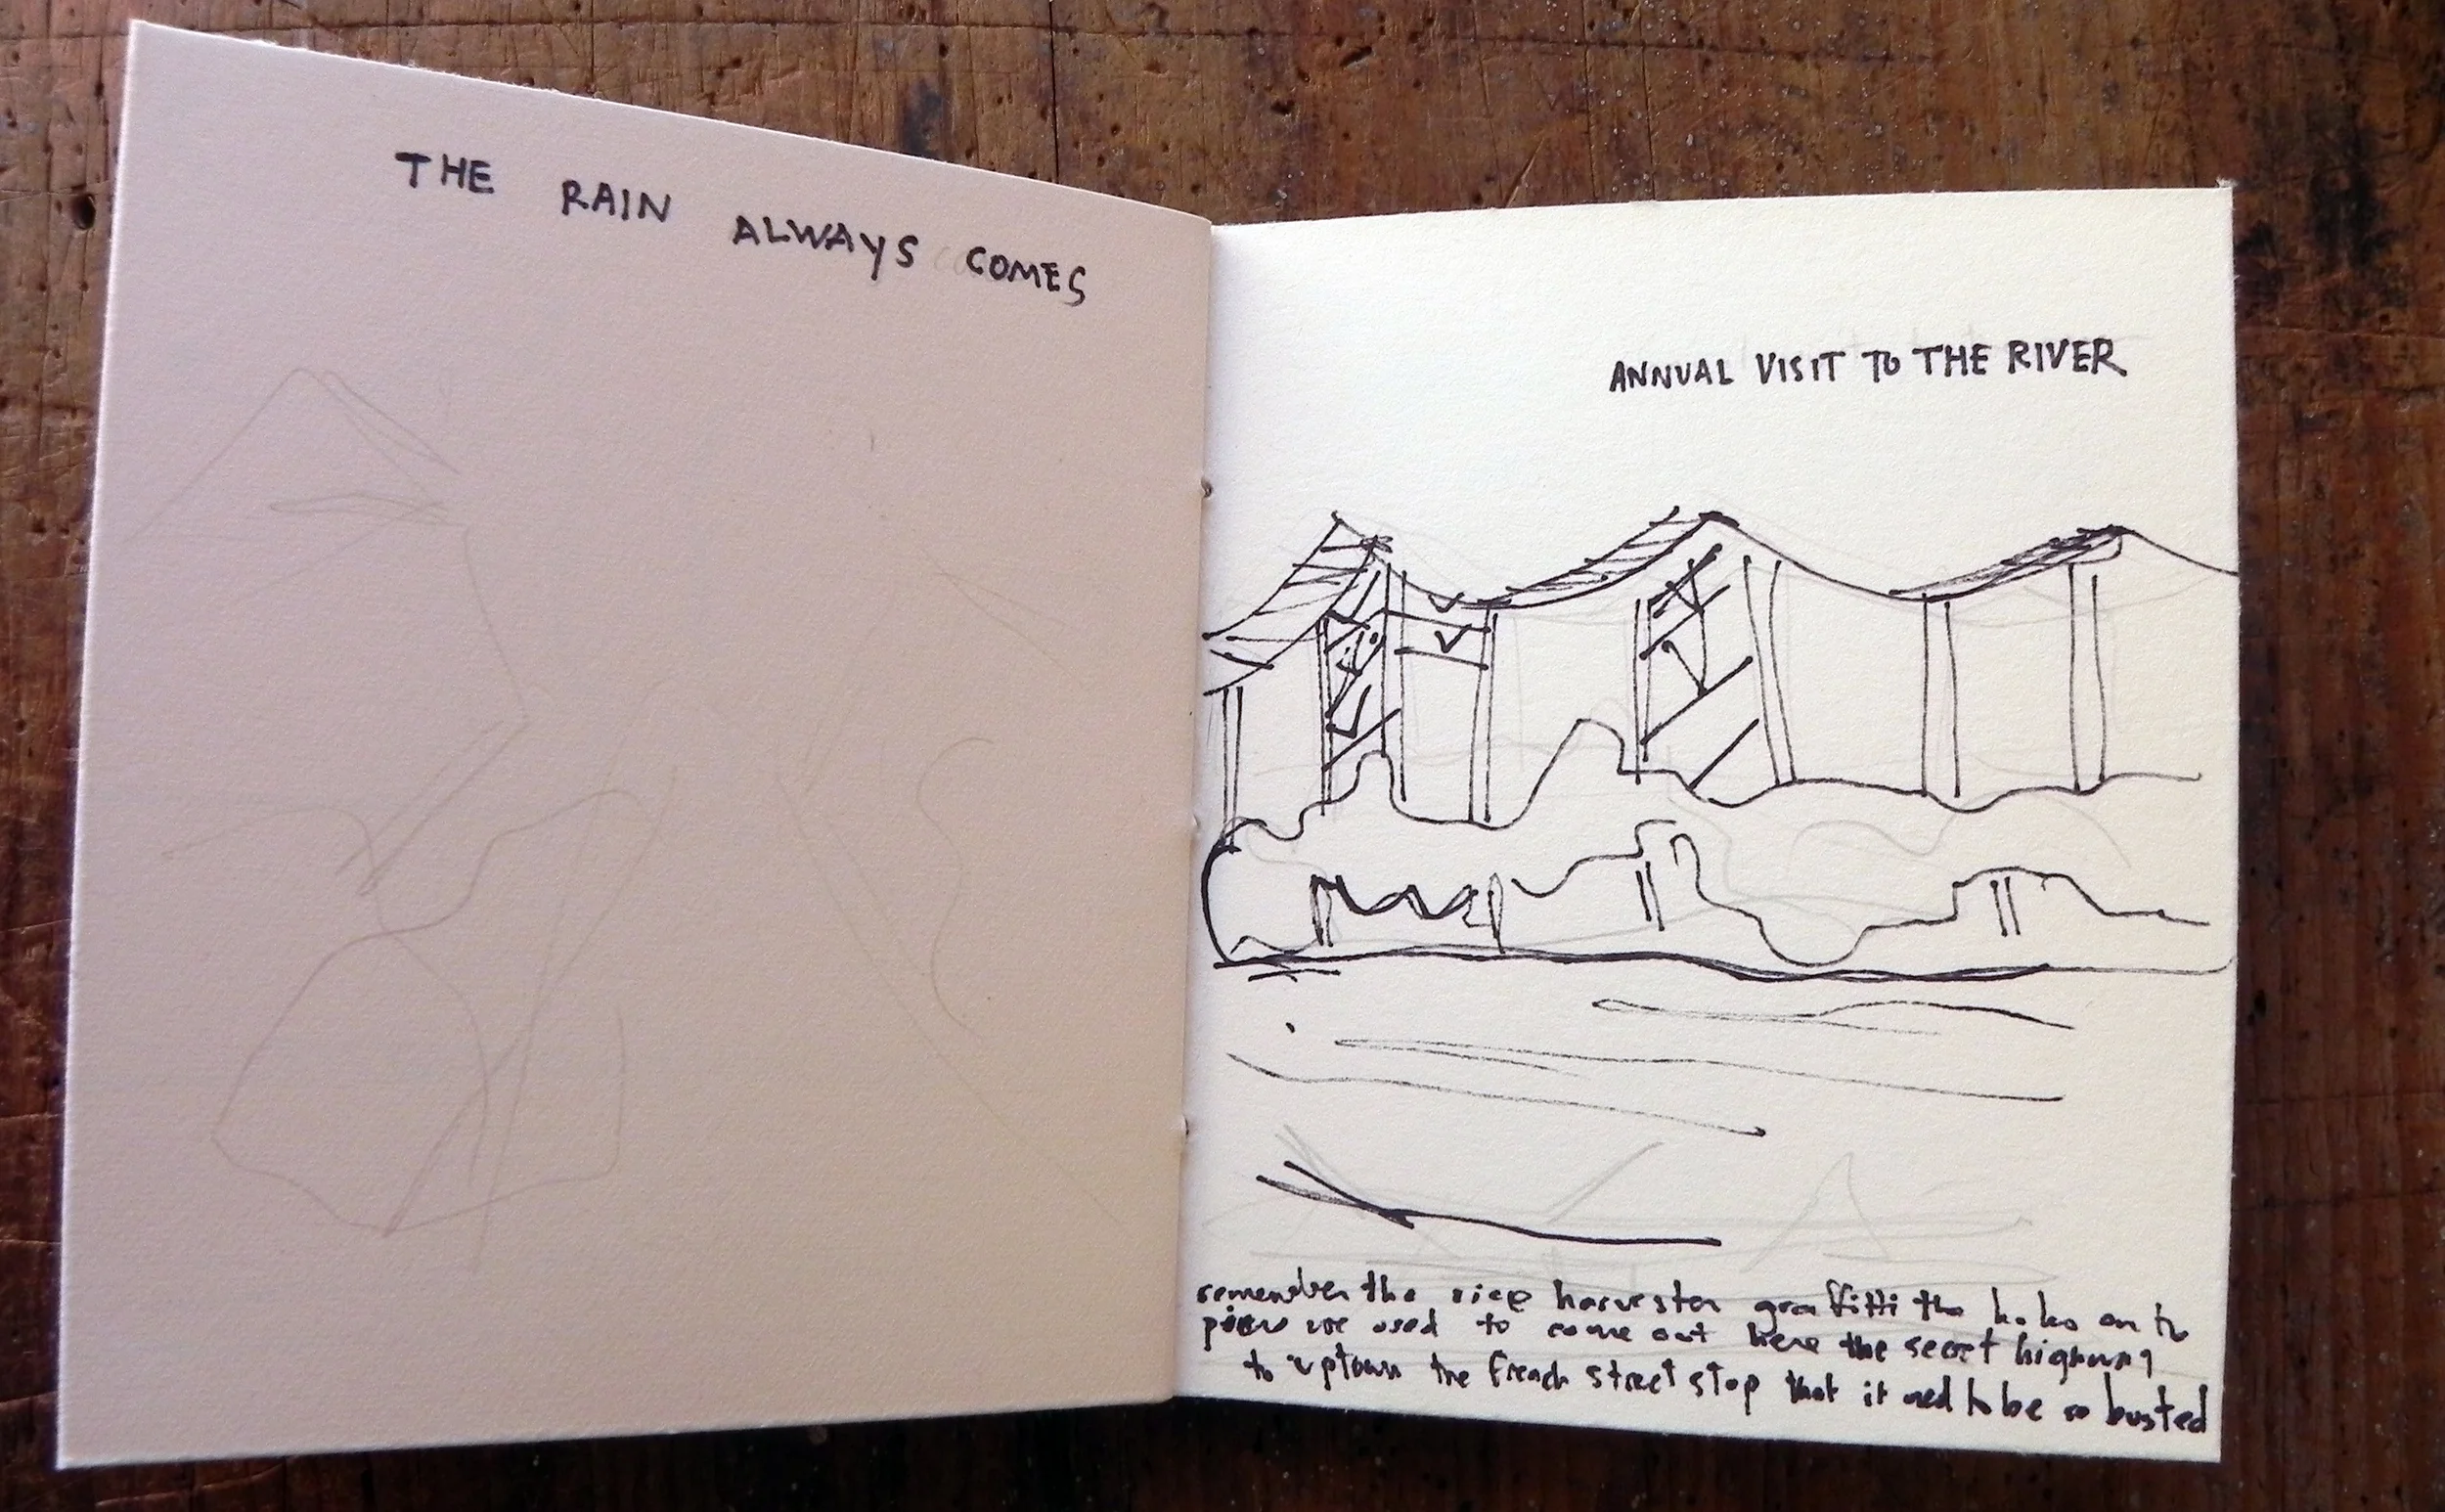 THE RAIN ALWAYS COMES
ANNUAL VISIT TO THE RIVER
remember the rice harvester graffitti the holes on the
piers we used to come out here the secret highway
to uptown the french street stop that it used to be so busted